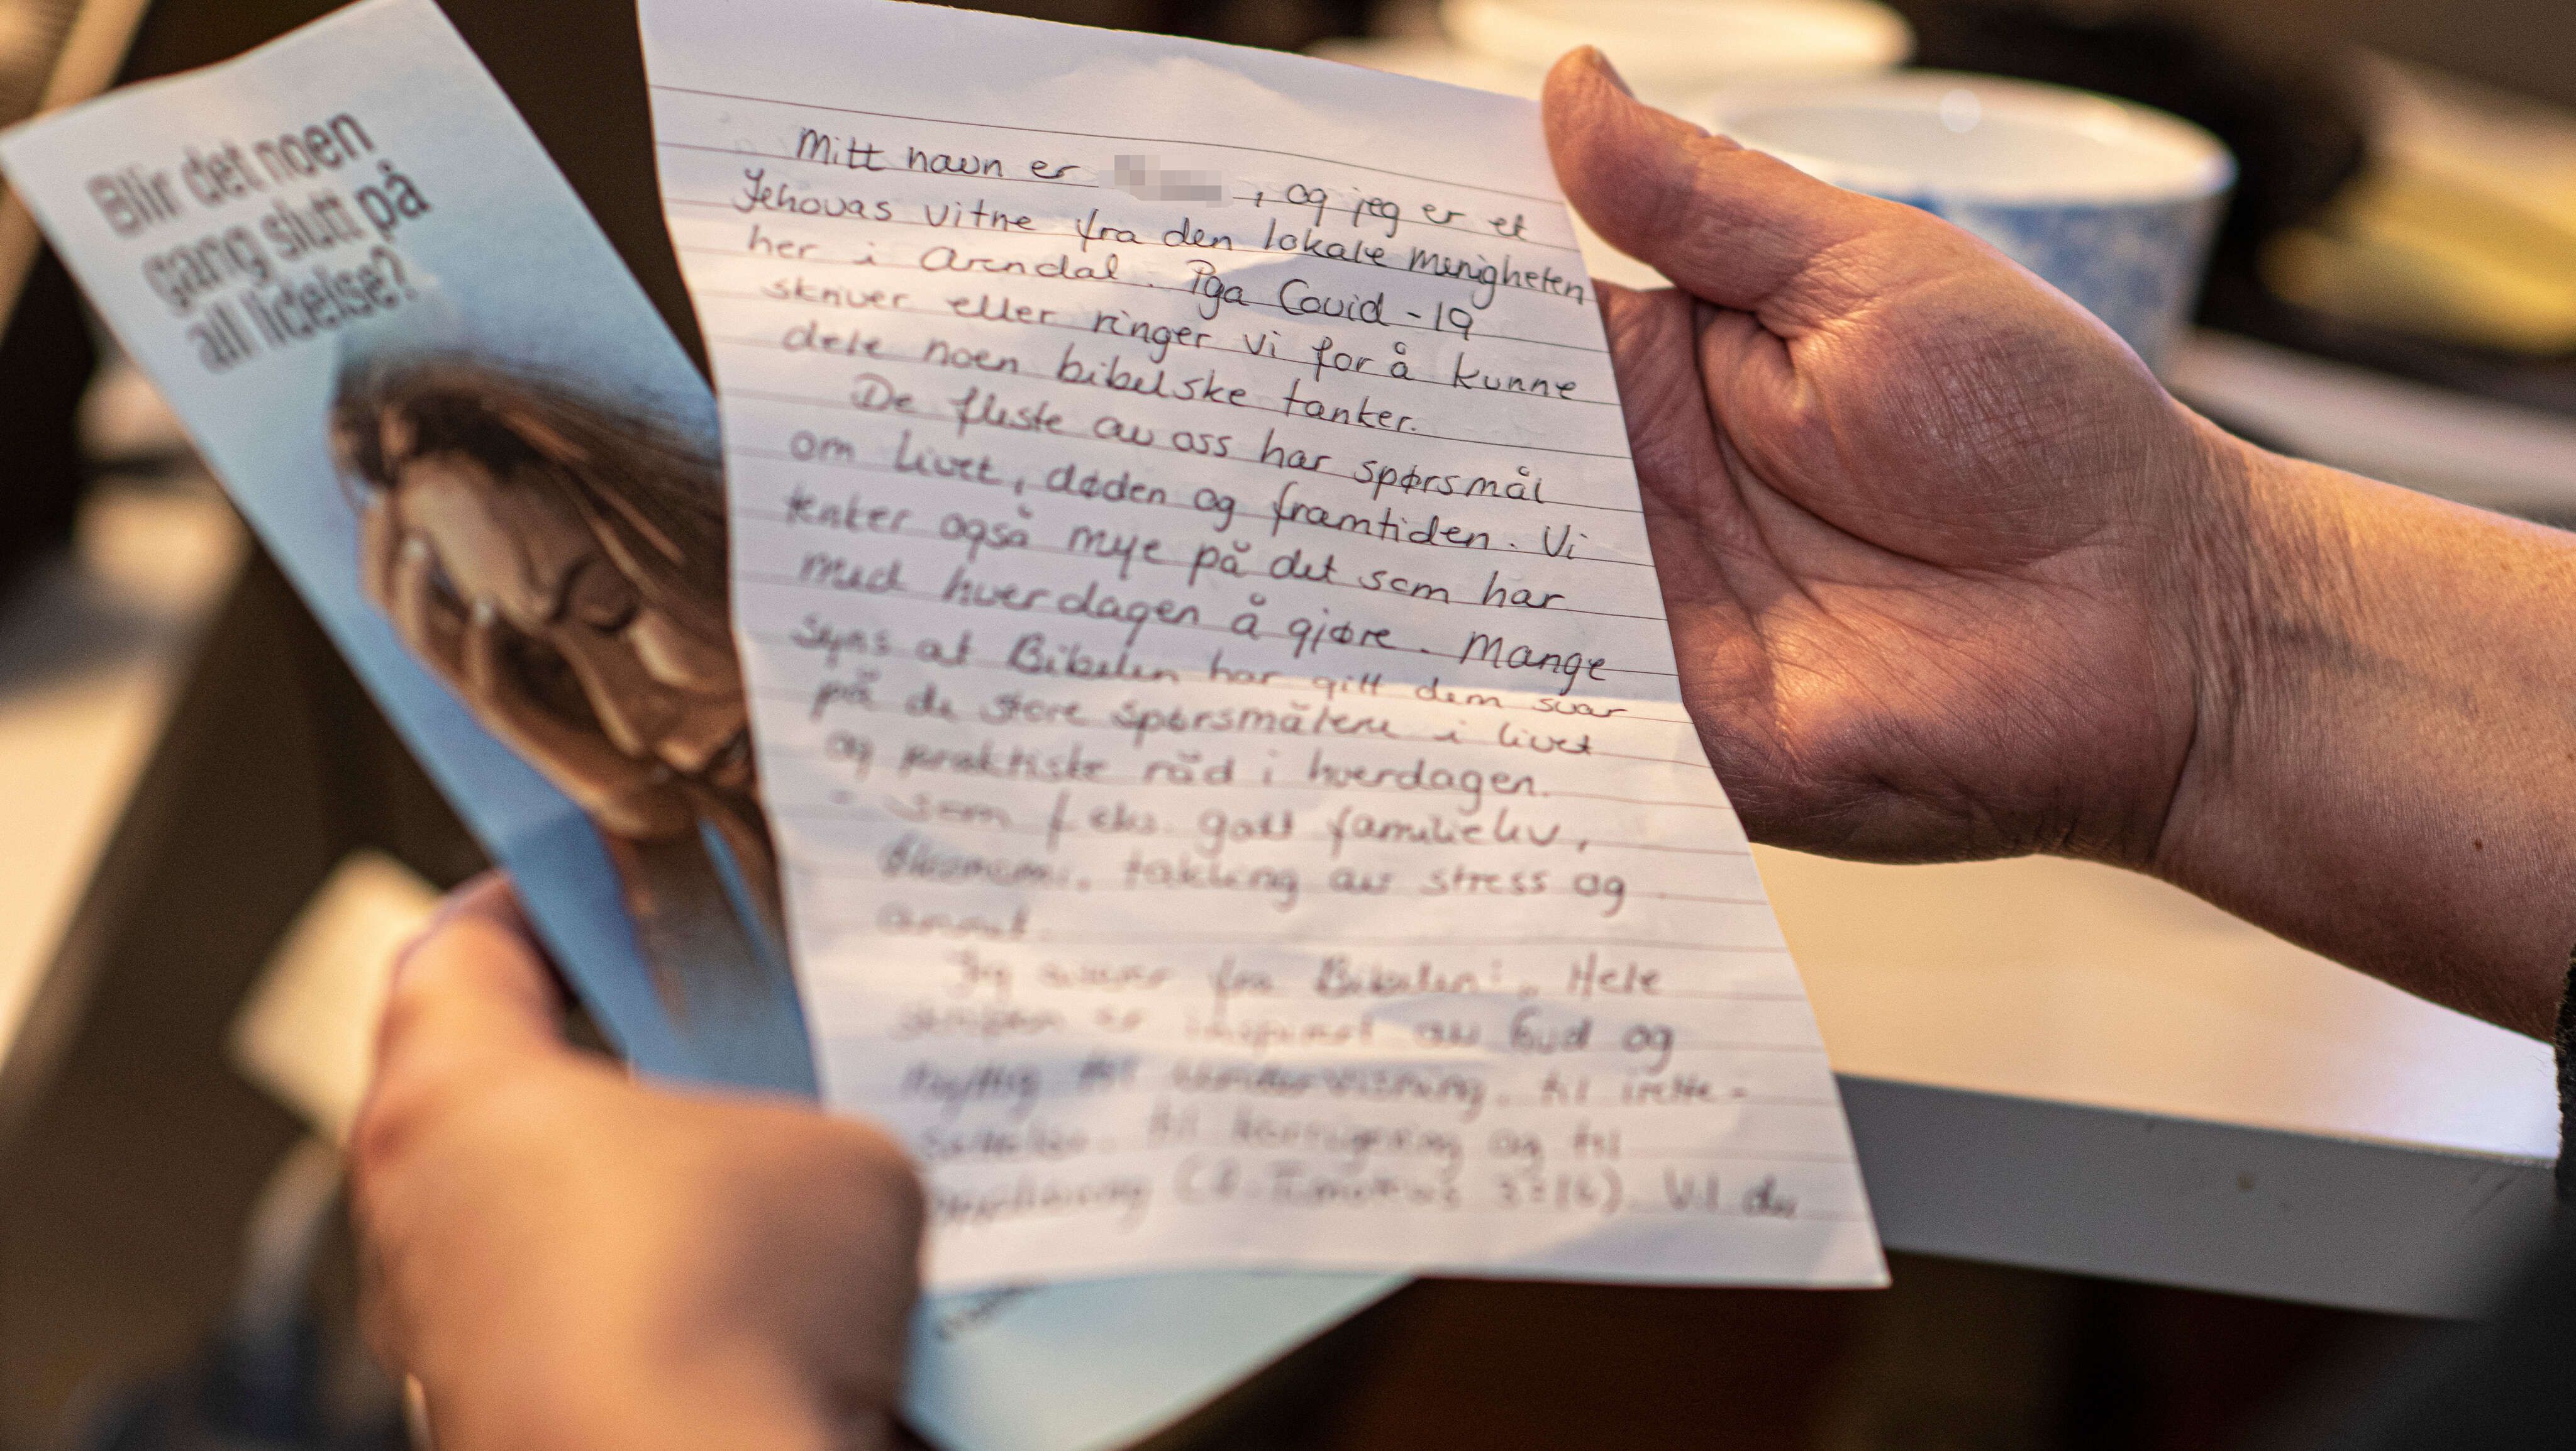 Blir det noen
gang slutt på
all lidelse?
Mitt navn er , og jeg er et
Jehovas vitne fra den lokale menigheten
her i Arendal. Pga Covid-19
skriver eller ringer vi for å kunne
dele noen bibelske tanker.
De fleste av oss har spørsmål
om livet, døden og framtiden. Vi
tenker også mye på det som har
med hverdagen å gjøre. Mange
syns at Bibelen har gitt dem svar
på de store spørsmålene i livet
og praktiske råd i hverdagen.
- som f.eks. godt familieliv,
økonomi, takling av stress og
annet.
Jeg siterer fra Bibelen: „Hele
er inspirert av Gud og
nyttig til undervisning, til irette-
settelse, til korrigering og til
(2 Timoteus 3:16). Vil du